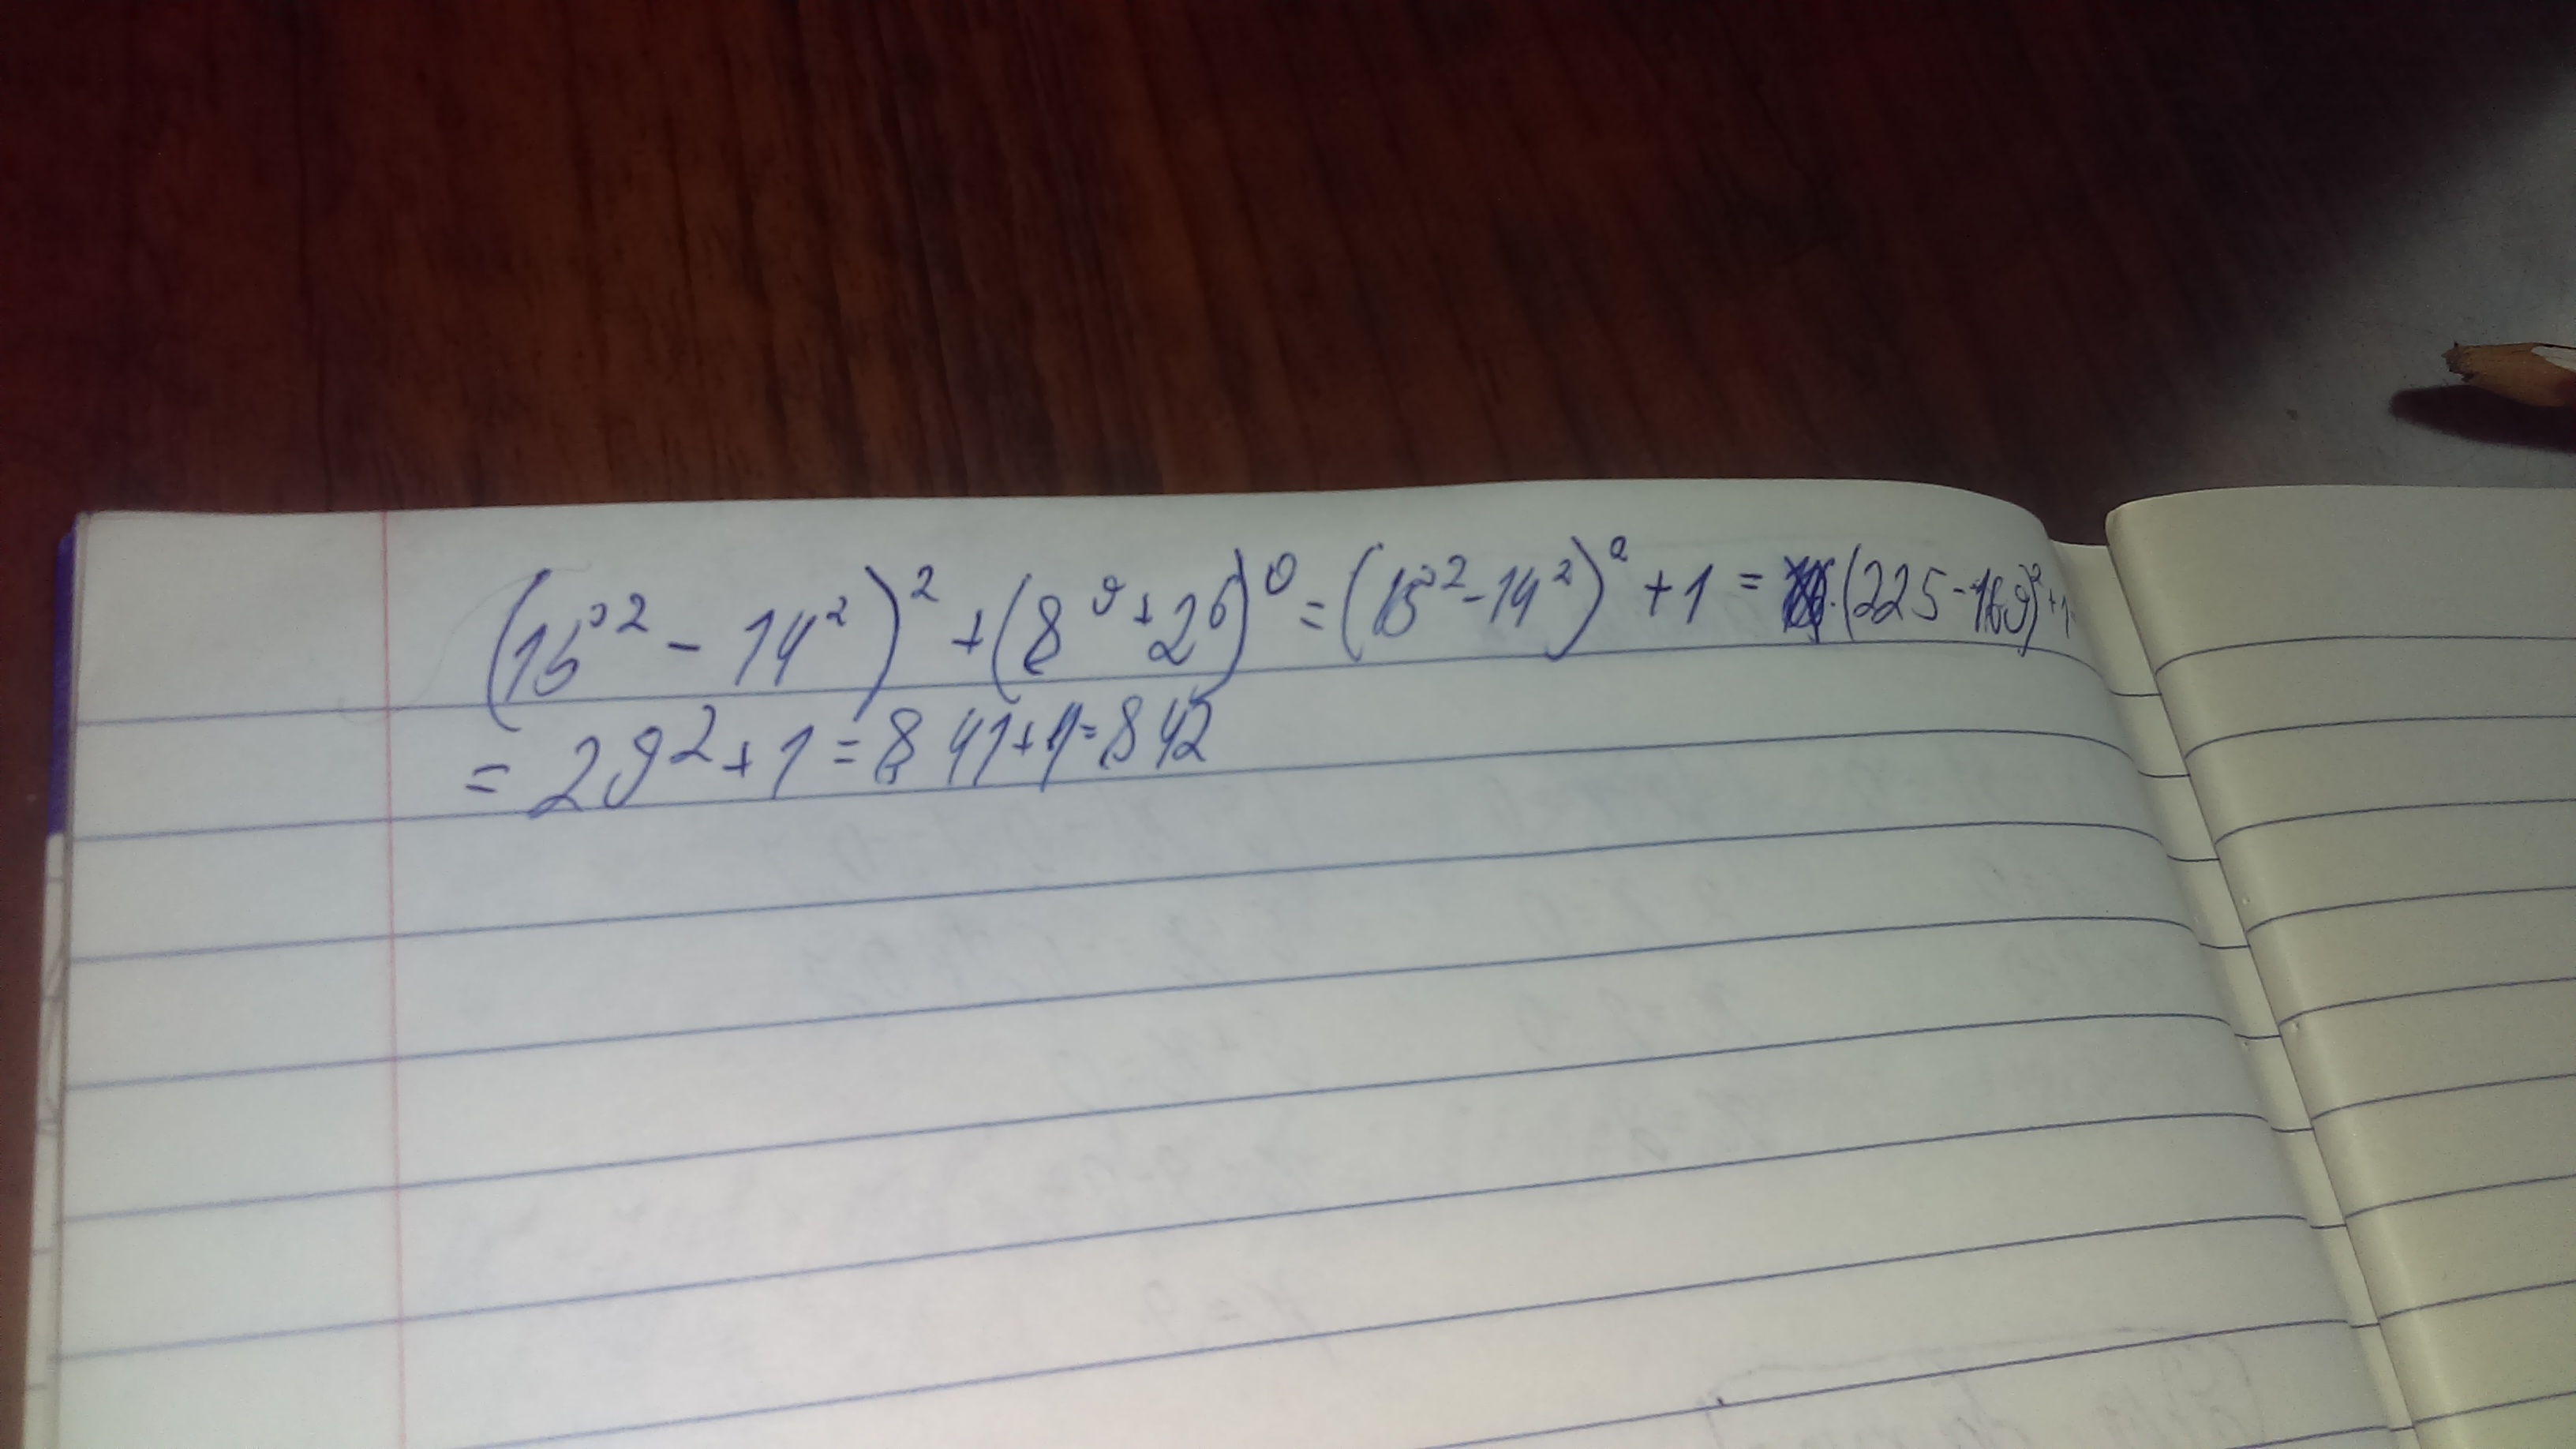 (15² - 14²)² + (8⁹ + 26)⁰ = (15² - 14²)² + 1 = (225 - 169)² + 1
= 29² + 1 = 841 + 1 = 842